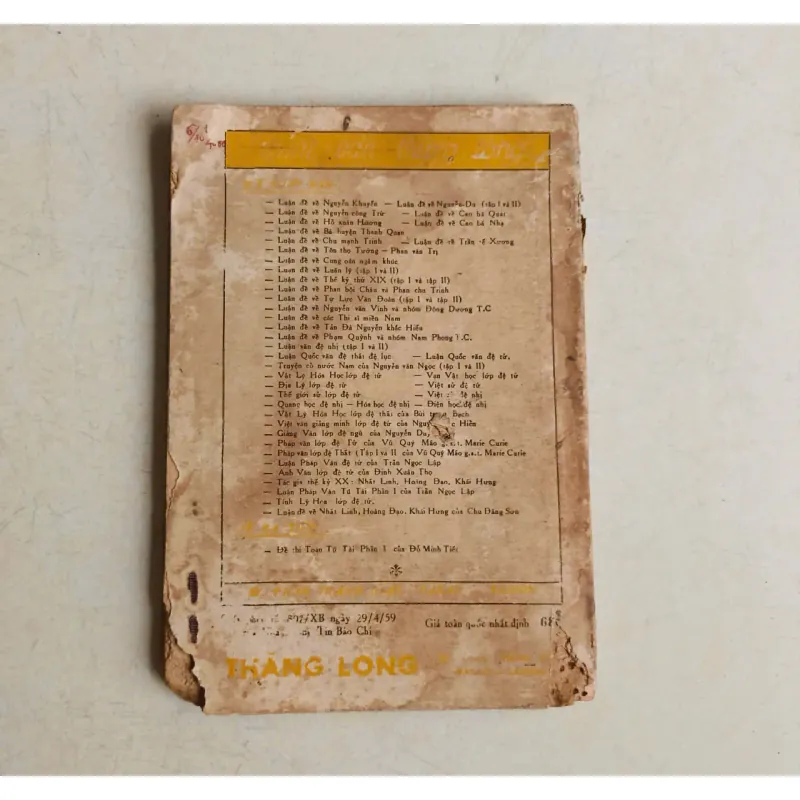 — Luận đề về Nguyễn Khuyến — Luận đề về Nguyễn Du (tập I và II)
— Luận đề về Nguyễn công Trứ — Luận đề về Cao bá Quát
— Luận đề về Hồ xuân Hương — Luận đề về Cao bá Nhạ
— Luận đề về Bà huyện Thanh Quan
— Luận đề về Chu mạnh Trinh — Luận đề về Trần tế Xương
— Luận đề về Tôn thọ Tường — Phan văn Trị
— Luận đề về Cung oán ngâm khúc
— Luận đề về Luân lý (tập I và II)
— Luận đề về Thế kỷ thứ XIX (tập I và tập II)
— Luận đề về Phan bội Châu và Phan chu Trinh
— Luận đề về Tự Lực Văn Đoàn (tập I và tập II)
— Luận đề về Nguyễn văn Vĩnh và nhóm Đông Dương T.C
— Luận đề về các Thi sĩ miền Nam
— Luận đề về Tản Đà Nguyễn khắc Hiếu
— Luận đề về Phạm Quỳnh và nhóm Nam Phong T.C.
— Luận văn đệ nhị (tập I và II)
— Luận Quốc văn đệ thất đệ lục — Luận Quốc văn đệ tứ.
— Truyện cổ nước Nam của Nguyễn văn Ngọc (tập I và II)
— Vật Lý Hóa Học lớp đệ tứ — Vạn Vật học lớp đệ tứ
— Địa Lý lớp đệ tứ — Việt sử đệ tứ
— Thế giới sử lớp đệ tứ — Việt đệ nhị
— Quang học đệ nhị — Hóa học đệ nhị — Điện học đệ nhị
— Vật Lý Hóa Học lớp đệ thất của Bùi Bạch
— Việt văn giảng minh lớp đệ tứ của Hiền
— Giảng Văn lớp đệ ngũ của Nguyễn Du
— Pháp văn lớp đệ Tứ của Vũ Quý Mão g.s.t. Marie Curie
— Pháp văn lớp đệ Thất (Tập I và II của Vũ Quý Mão g.s.t. Marie Curie
— Luận Pháp Văn đệ tứ của Trần Ngọc Lập
— Anh Văn lớp đệ tứ của Đinh Xuân Thọ
— Tác gia thế kỷ XX: Nhất Linh, Hoàng Đạo, Khái Hưng
— Luận Pháp Văn Tú Tài Phần I của Trần Ngọc Lập
— Tính Lý Hóa lớp đệ tứ.
— Luận đề về Nhất Linh, Hoàng Đạo, Khái Hưng của Chu Đăng Sơn
— Đề thi Toán Tú Tài Phần I của Đỗ Minh Tiết
/XB ngày 29/4/59
Giá toàn quốc nhất định
Tin Báo Chí
THĂNG LONG